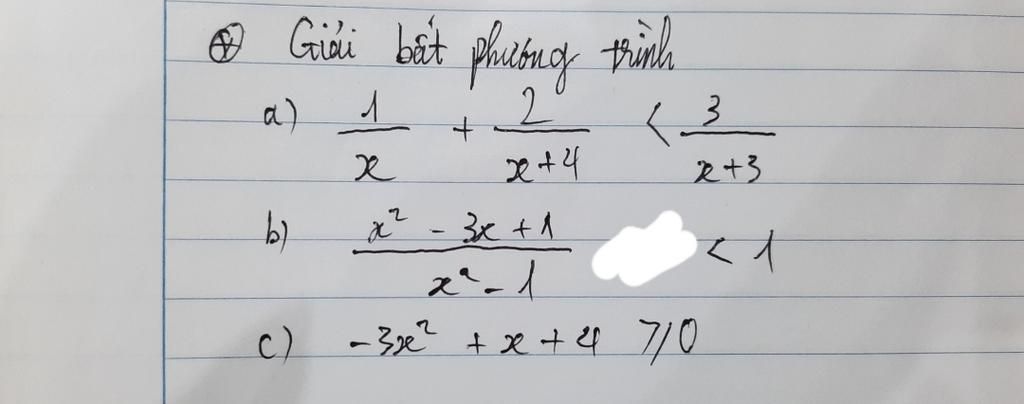 ⊕ Giải bất phương trình
a) 1/x + 2/(x+4) < 3/(x+3)
b) (x² - 3x + 1)/(x² - 1) < 1
c) -3x² + x + 4 ≥ 0